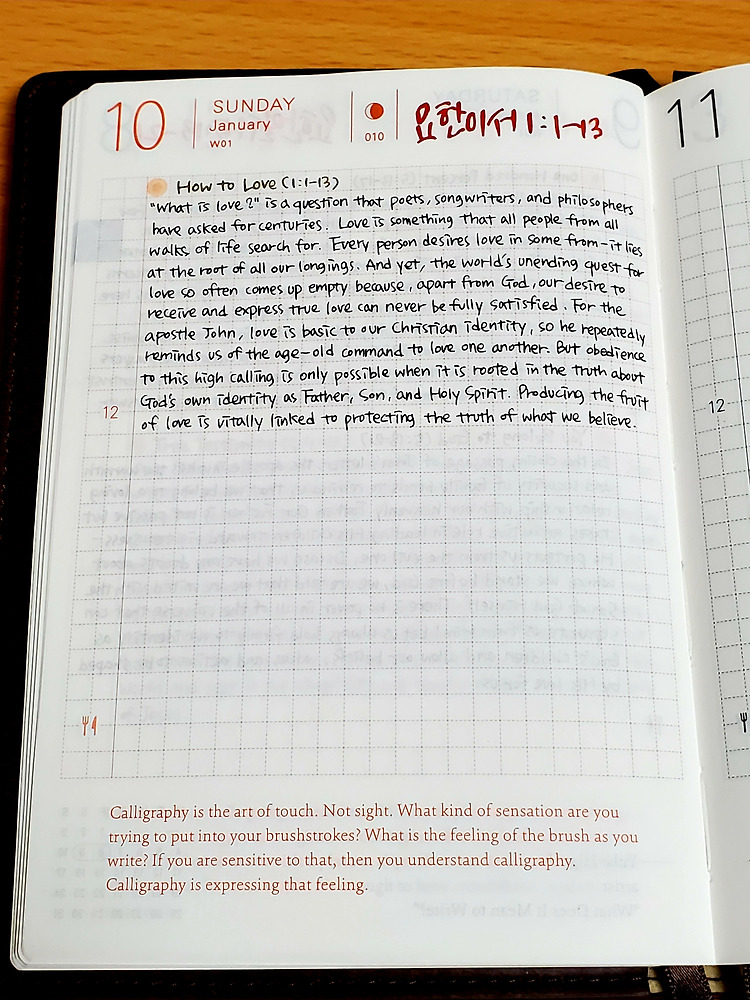 10
SUNDAY
January
W01
010
요한이서 1:1-13
11
How to Love (1:1-13)
"What is love?" is a question that poets, songwriters, and philosophers
have asked for centuries. Love is something that all people from all
walks of life search for. Every person desires love in some from-it lies
at the root of all our longings. And yet, the world's unending quest for
love so often comes up empty because, apart from God, our desire to
receive and express true love can never be fully satisfied. For the
apostle John, love is basic to our Christian identity, so he repeatedly
reminds us of the age-old command to love one another. But obedience
to this high calling is only possible when it is rooted in the truth about
God's own identity as Father, Son, and Holy Spirit. Producing the fruit
of love is vitally linked to protecting the truth of what we believe.
12
12
Calligraphy is the art of touch. Not sight. What kind of sensation are you
trying to put into your brushstrokes? What is the feeling of the brush as you
write? If you are sensitive to that, then you understand calligraphy.
Calligraphy is expressing that feeling.